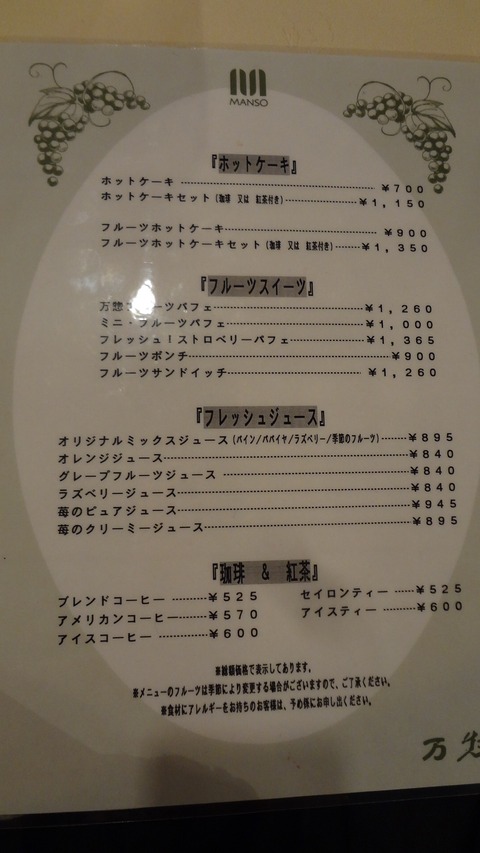 MANSO
『ホットケーキ』
ホットケーキ ¥700
ホットケーキセット(珈琲 又は 紅茶付き) ¥1,150
フルーツホットケーキ ¥900
フルーツホットケーキセット(珈琲 又は 紅茶付き) ¥1,350
『フルーツスイーツ』
万惣 ーツパフェ ¥1,260
ミニ・フルーツパフェ ¥1,000
フレッシュ!ストロベリーパフェ ¥1,365
フルーツポンチ ¥900
フルーツサンドイッチ ¥1,260
『フレッシュジュース』
オリジナルミックスジュース(パイン/パパイヤ/ラズベリー/季節のフルーツ) ¥895
オレンジジュース ¥840
グレープフルーツジュース ¥840
ラズベリージュース ¥840
苺のピュアジュース ¥945
苺のクリーミージュース ¥895
『珈琲 & 紅茶』
ブレンドコーヒー ¥525 セイロンティー ¥525
アメリカンコーヒー ¥570 アイスティー ¥600
アイスコーヒー ¥600
※総額価格で表示してあります。
※メニューのフルーツは季節により変更する場合がございますので、ご了承ください。
※食材にアレルギーをお持ちのお客様は、予め係にお申し出ください。
万惣